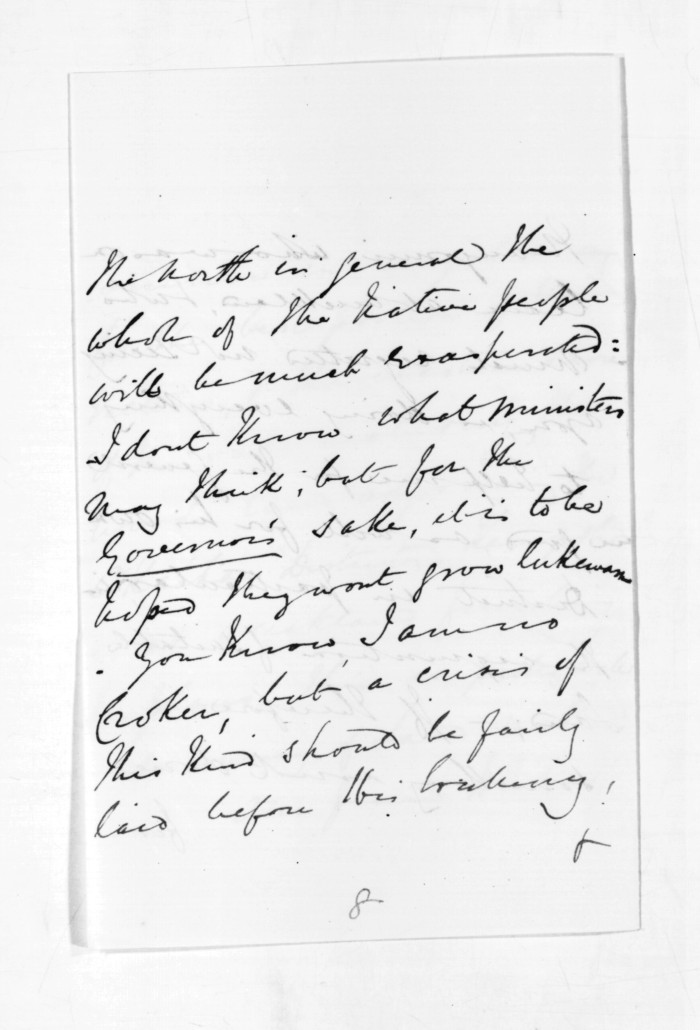 The North in general the
whole of the Native people
will be much exasperated:
I dont Know what ministers
may think; but for the
Governor's sake, it is to be
hoped they wont grow lukewarm
. You Know, I am no
Croker, but a crisis of
this Kind should be fairly
laid before His
&
8